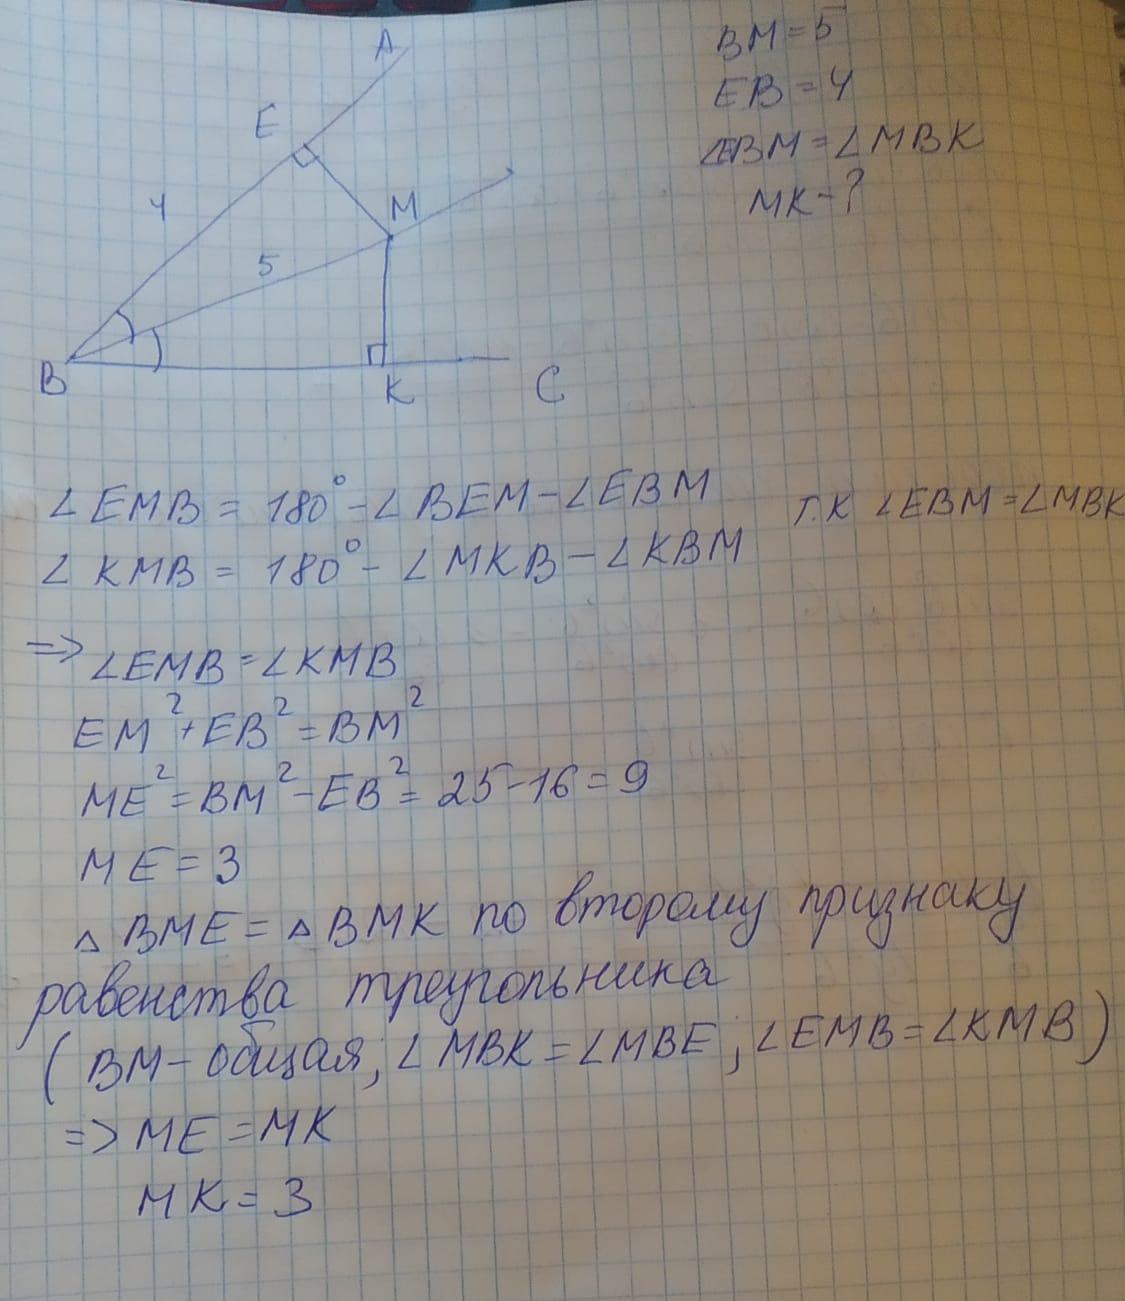 A
E
M
4
5
B
K
C
BM = 5
EB = 4
∠EBM = ∠MBK
MK - ?
∠EMB = 180° - ∠BEM - ∠EBM
т.к ∠EBM = ∠MBK
∠KMB = 180° - ∠MKB - ∠KBM
=> ∠EMB = ∠KMB
EM² + EB² = BM²
ME² = BM² - EB² = 25 - 16 = 9
ME = 3
△BME = △BMK по второму признаку
равенства треугольника
(BM - общая; ∠MBK = ∠MBE; ∠EMB = ∠KMB)
=> ME = MK
MK = 3